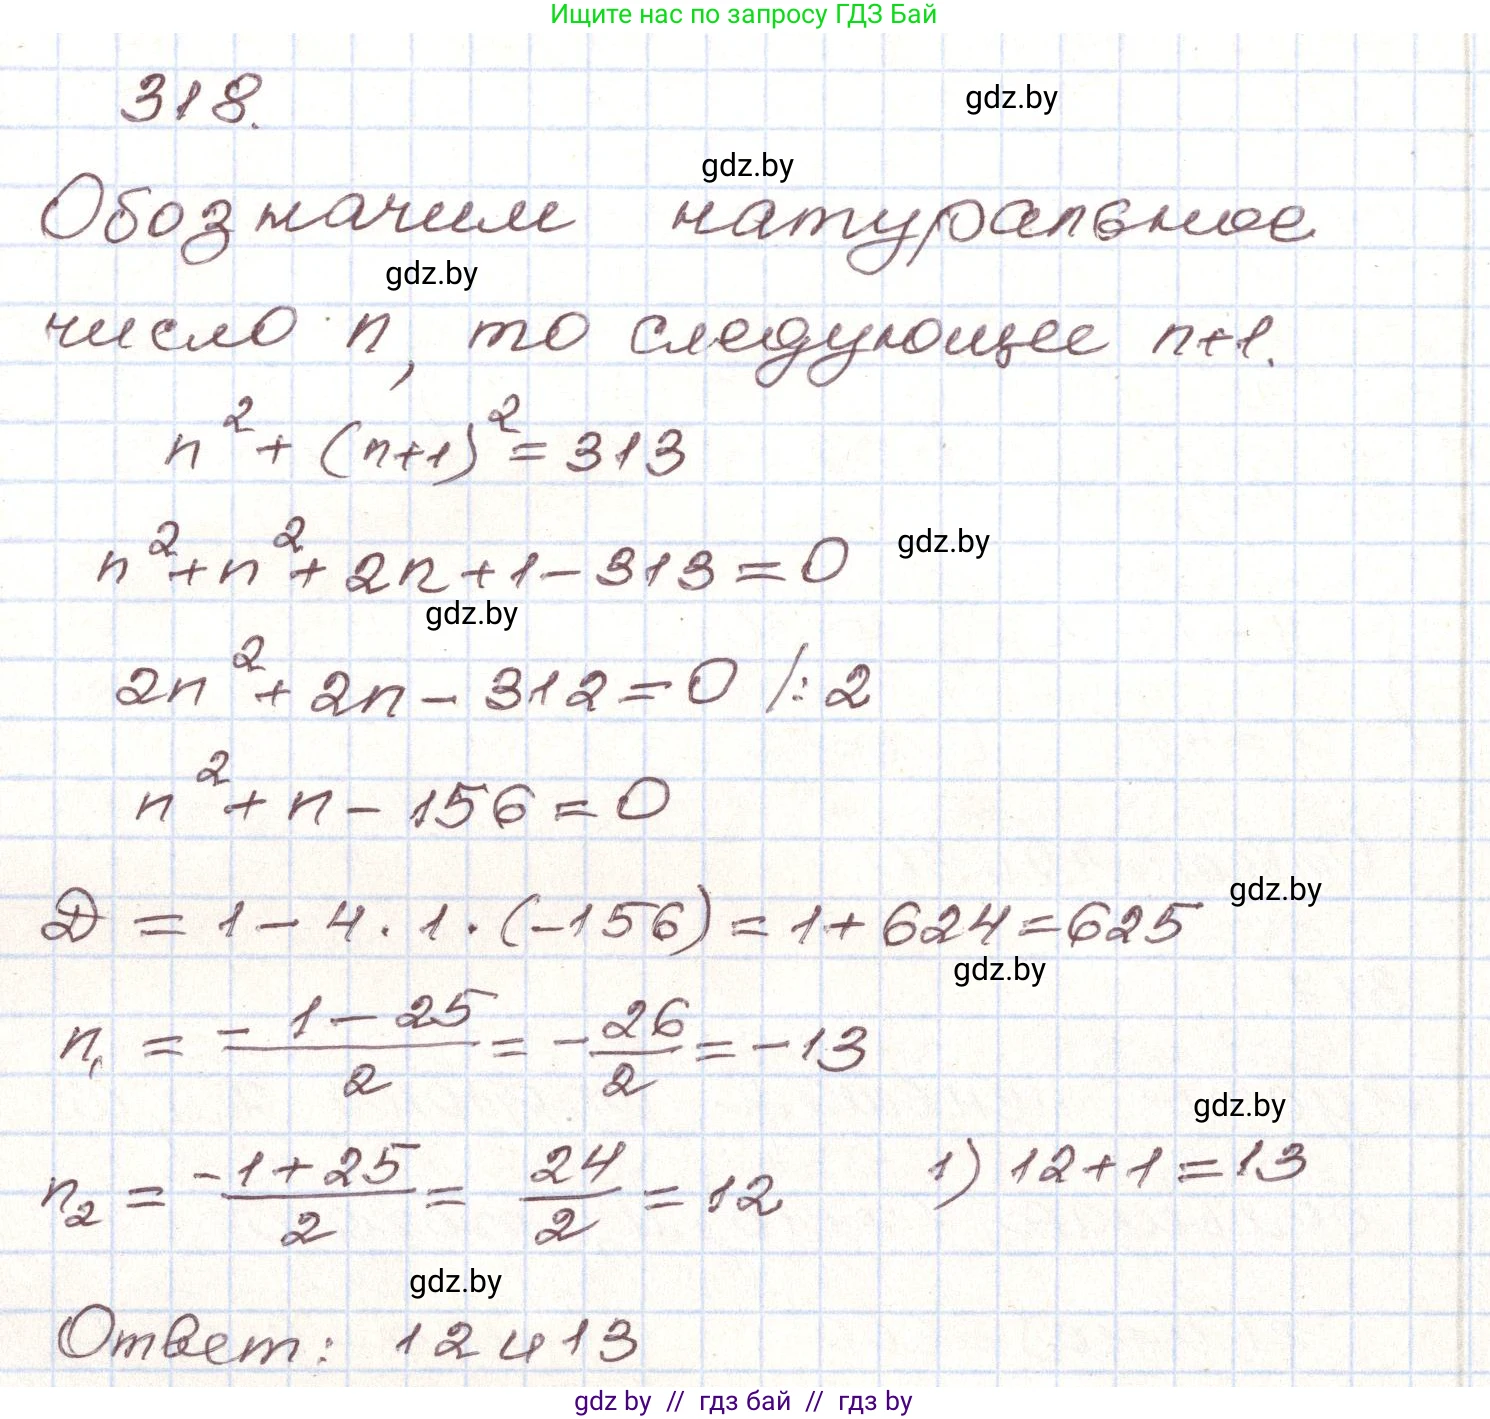 Ищите нас по запросу ГДЗ Бай
318.
gdz.by
gdz.by
Обозначим натуральное
gdz.by
число n, то следующее n+1.
n² + (n+1)² = 313
n² + n² + 2n + 1 - 313 = 0
gdz.by
gdz.by
2n² + 2n - 312 = 0 /:2
n² + n - 156 = 0
gdz.by
D = 1 - 4 · 1 · (-156) = 1 + 624 = 625
gdz.by
n₁ = (-1 - 25)/2 = -26/2 = -13
gdz.by
n₂ = (-1 + 25)/2 = 24/2 = 12 1) 12 + 1 = 13
gdz.by
Ответ: 12 и 13
gdz by // гдз бай // гдз by